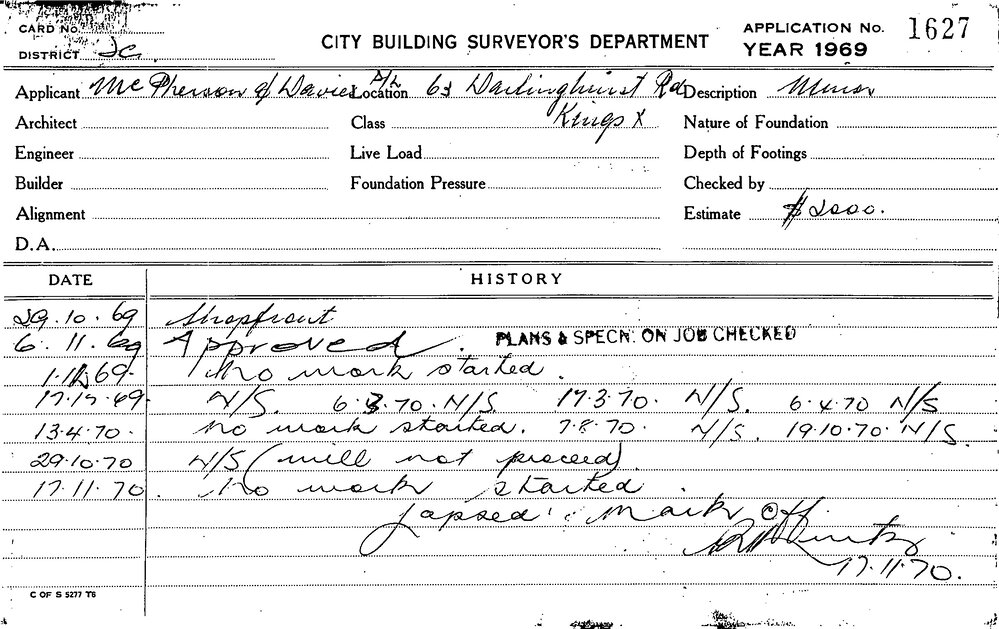 CARD No.
DISTRICT
CITY BUILDING SURVEYOR'S DEPARTMENT
APPLICATION No. 1627
YEAR 1969
Applicant McPherson & Davies P/L Location 63 Darlinghurst Rd Description Minor
Architect Class Kings X Nature of Foundation
Engineer Live Load Depth of Footings
Builder Foundation Pressure Checked by
Alignment Estimate $2000.
D.A.
DATE HISTORY
29.10.69 Shopfront
6.11.69 Approved. PLANS & SPECN. ON JOB CHECKED
69. No work started.
17.12.69. N/S. 6.3.70. N/S. 17.3.70. N/S. 6.4.70 N/S
13.4.70. No work started. 7.8.70. N/S. 19.10.70. N/S.
29.10.70 N/S (will not proceed).
17.11.70. No work started.
Lapsed. Mark Off.
17.11.70.
C OF S 5277 T8